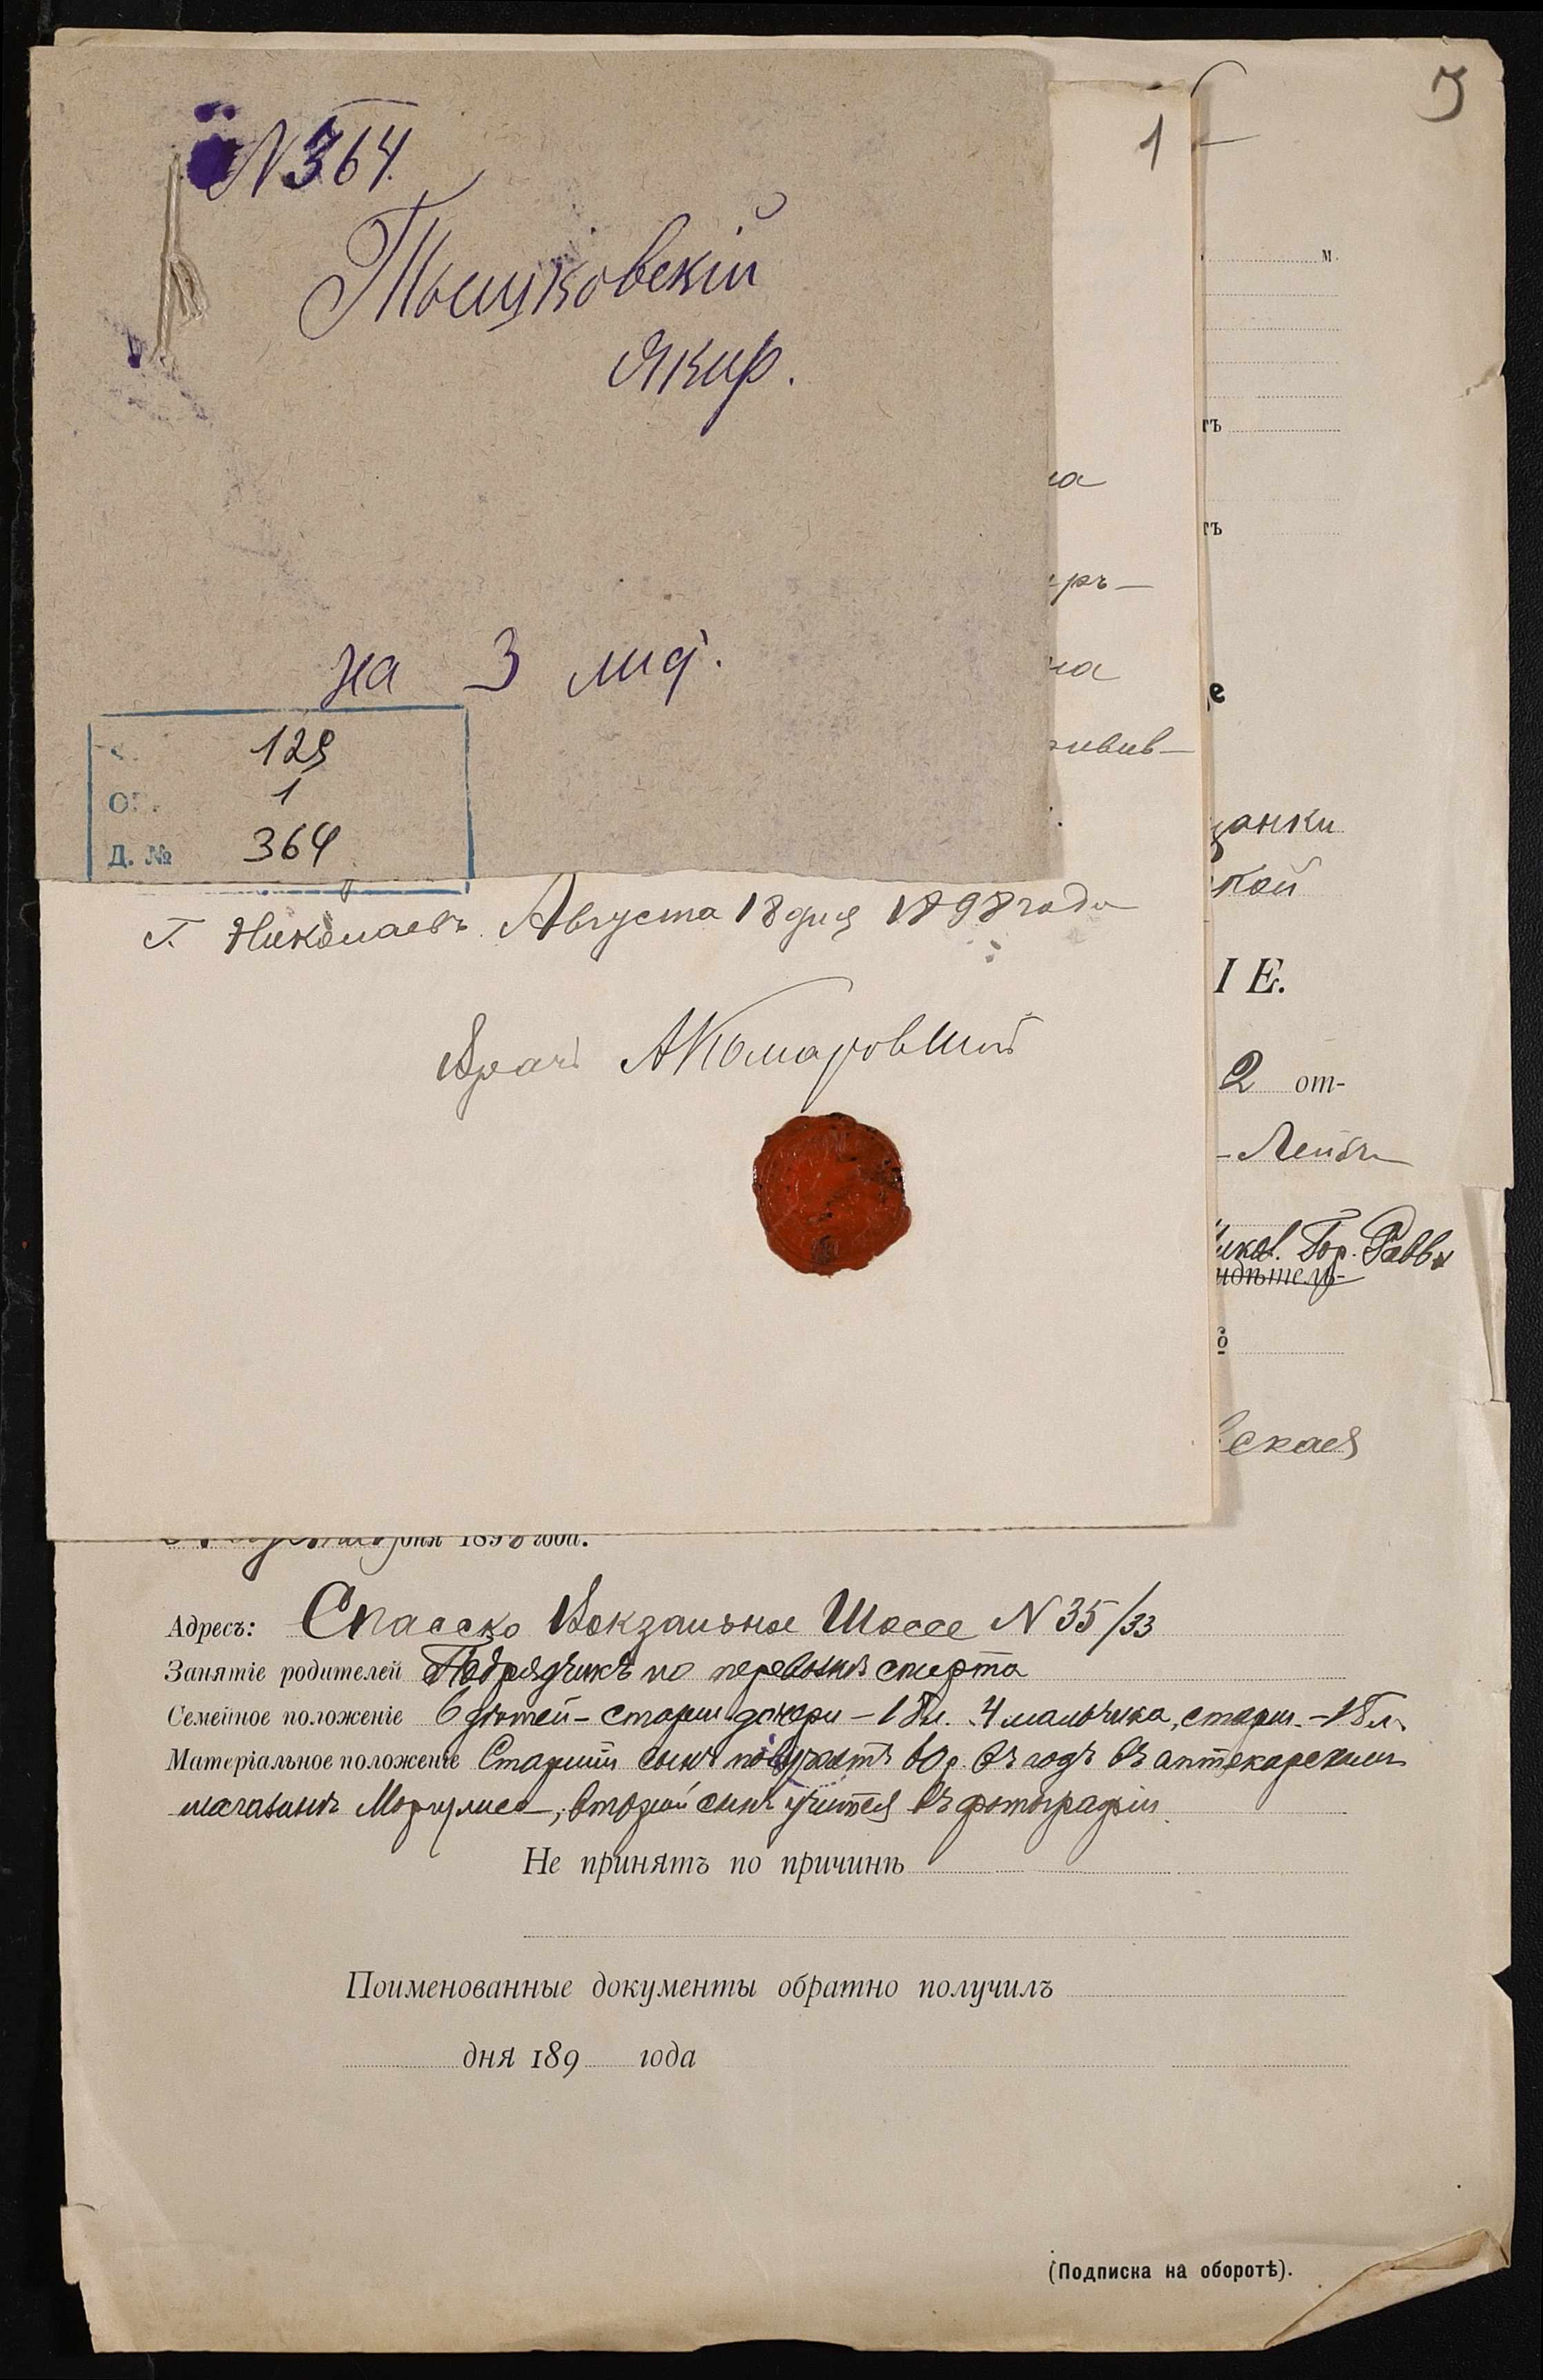 N 364.
Тышковскій
Якир.
на 3 лид.
129
ОП. 1
Д. № 364
1
м.
тъ
на
тъ
ръ-
на
е
ивив-
щанки
кой
г. Николаевъ. Августа 18 дня 1898 года
ІЕ.
Врачъ АКомаровскій
2 от-
- Лейбъ
Гор. Равв
идѣтель-
о
ская
дня 1898 года.
Адресъ: Спасско Вокзальное Шоссе N 35/33
Занятіе родителей Подрядчикъ по перевозкѣ спирта
Семейное положеніе 6 дѣтей - старш. дочери - 1 л. 4 мальчика, старш. - 18 л.
Матеріальное положеніе Старшій сынъ получаетъ 60 р. въ годъ въ аптекарскомъ
магазинѣ Моргулиса, второй сынъ учится въ фотографіи.
Не принятъ по причинѣ
Поименованные документы обратно получилъ
дня 189 года
(Подписка на оборотѣ).